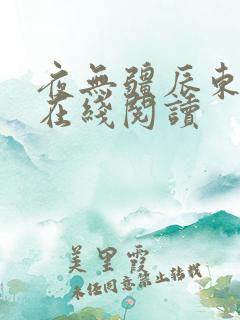 夜無疆辰東
在綫閱讀
美里霞
未经同意禁止转载